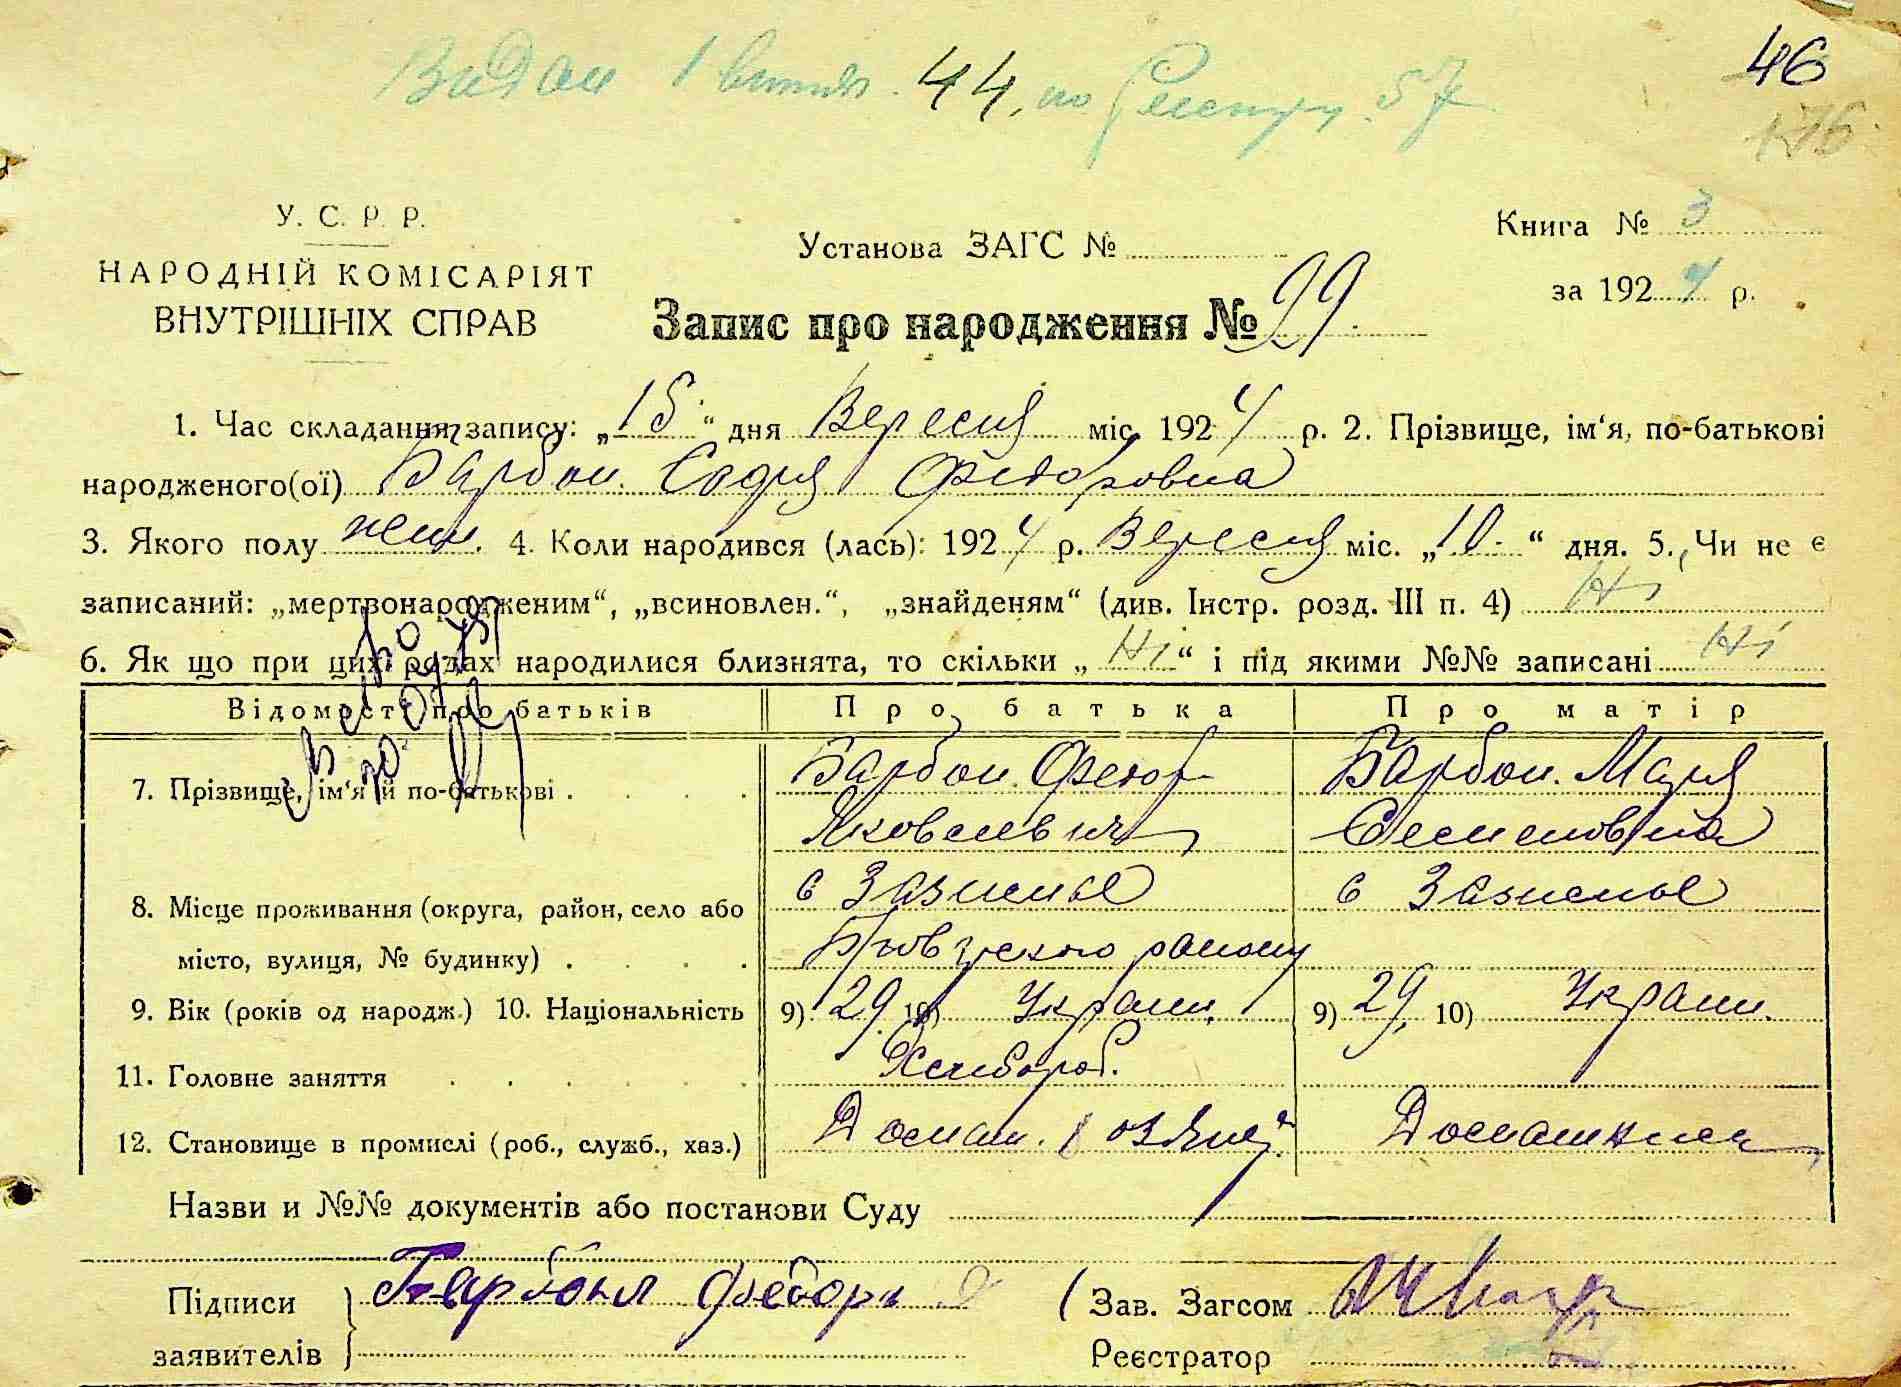 Видан 1 витяг. 44, по Реєстру. 57
46
176
У. С. Р. Р.
НАРОДНІЙ КОМІСАРІЯТ
ВНУТРІШНІХ СПРАВ
Установа ЗАГС №
Книга № 3
за 1924 р.
Запис про народження № 99
1. Час складання запису: „15“ дня Вересня міс. 1924 р. 2. Прізвище, ім'я, по-батькові
народженого(ої) Барбон. Софія Федоровна
3. Якого полу жин. 4. Коли народився (лась): 1924 р. Вересня міс. „10.“ дня. 5. Чи не є
записаний: „мертвонародженим“, „всиновлен.“, „знайденям“ (див. Інстр. розд. III п. 4) Ні
6. Як що при цих родах народилися близнята, то скільки „Ні“ і під якими №№ записані Ні
Відомості про батьків Про батька Про матір
7. Прізвище, ім'я й по-батькові . . . . Барбон. Федор Барбон. Марія
Яковлевич Семеновна
8. Місце проживання (округа, район, село або с Зазимье с Зазимье
місто, вулиця, № будинку) . . . . району
9. Вік (років од народж.) 10. Національність 9) 29 10) Украин. 9) 29. 10) Украин.
11. Головне заняття . . . . . . Хлебороб.
12. Становище в промислі (роб., служб., хаз.) Домаш. Домашния
Назви и №№ документів або постанови Суду
Підписи
заявителів
Федоръ
Зав. Загсом
Реєстратор